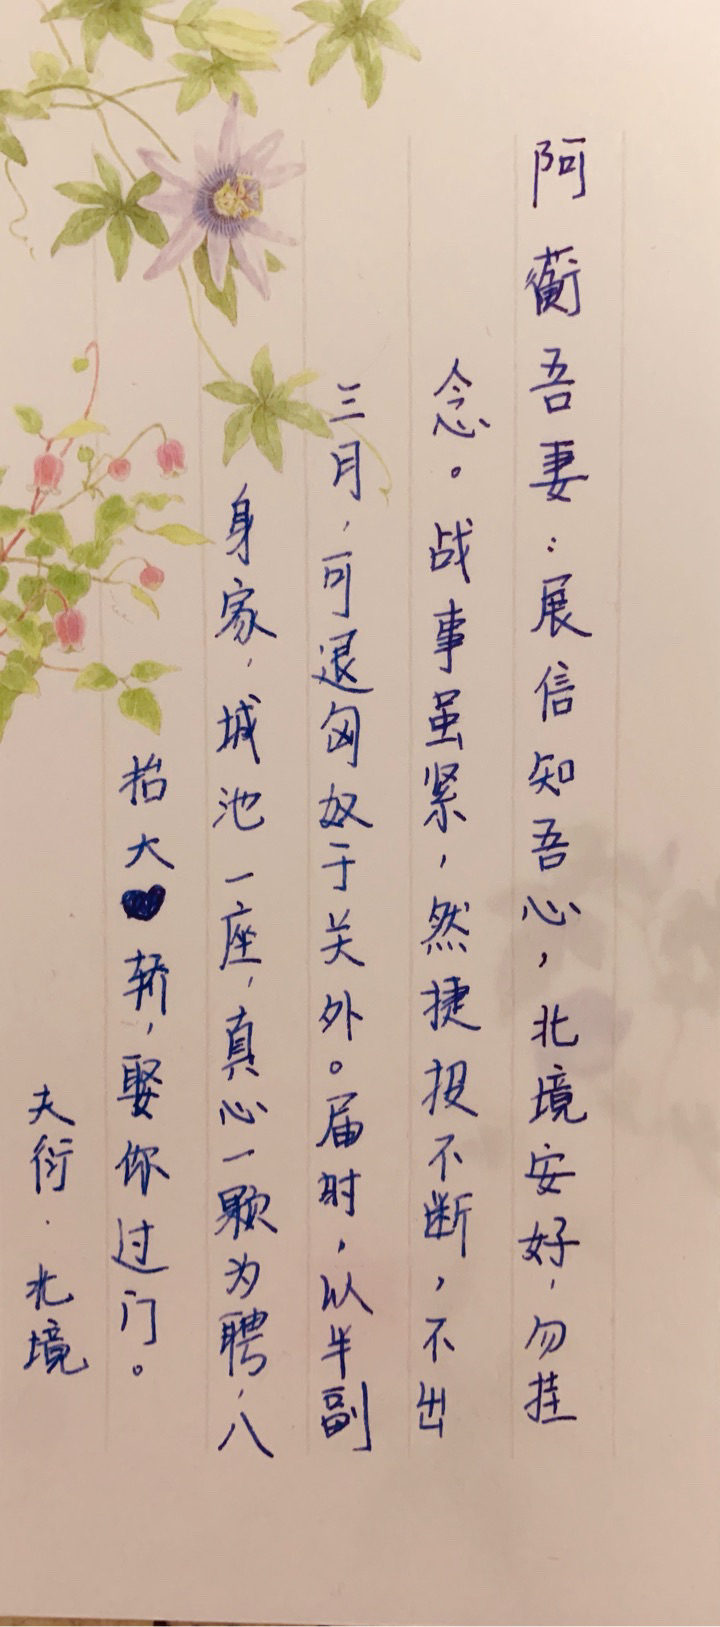 阿蘅吾妻：展信知吾心，北境安好，勿挂
念。战事虽紧，然捷报不断，不出
三月，可退匈奴于关外。届时，以半副
身家，城池一座，真心一颗为聘，八
抬大轿，娶你过门。
夫衍·北境